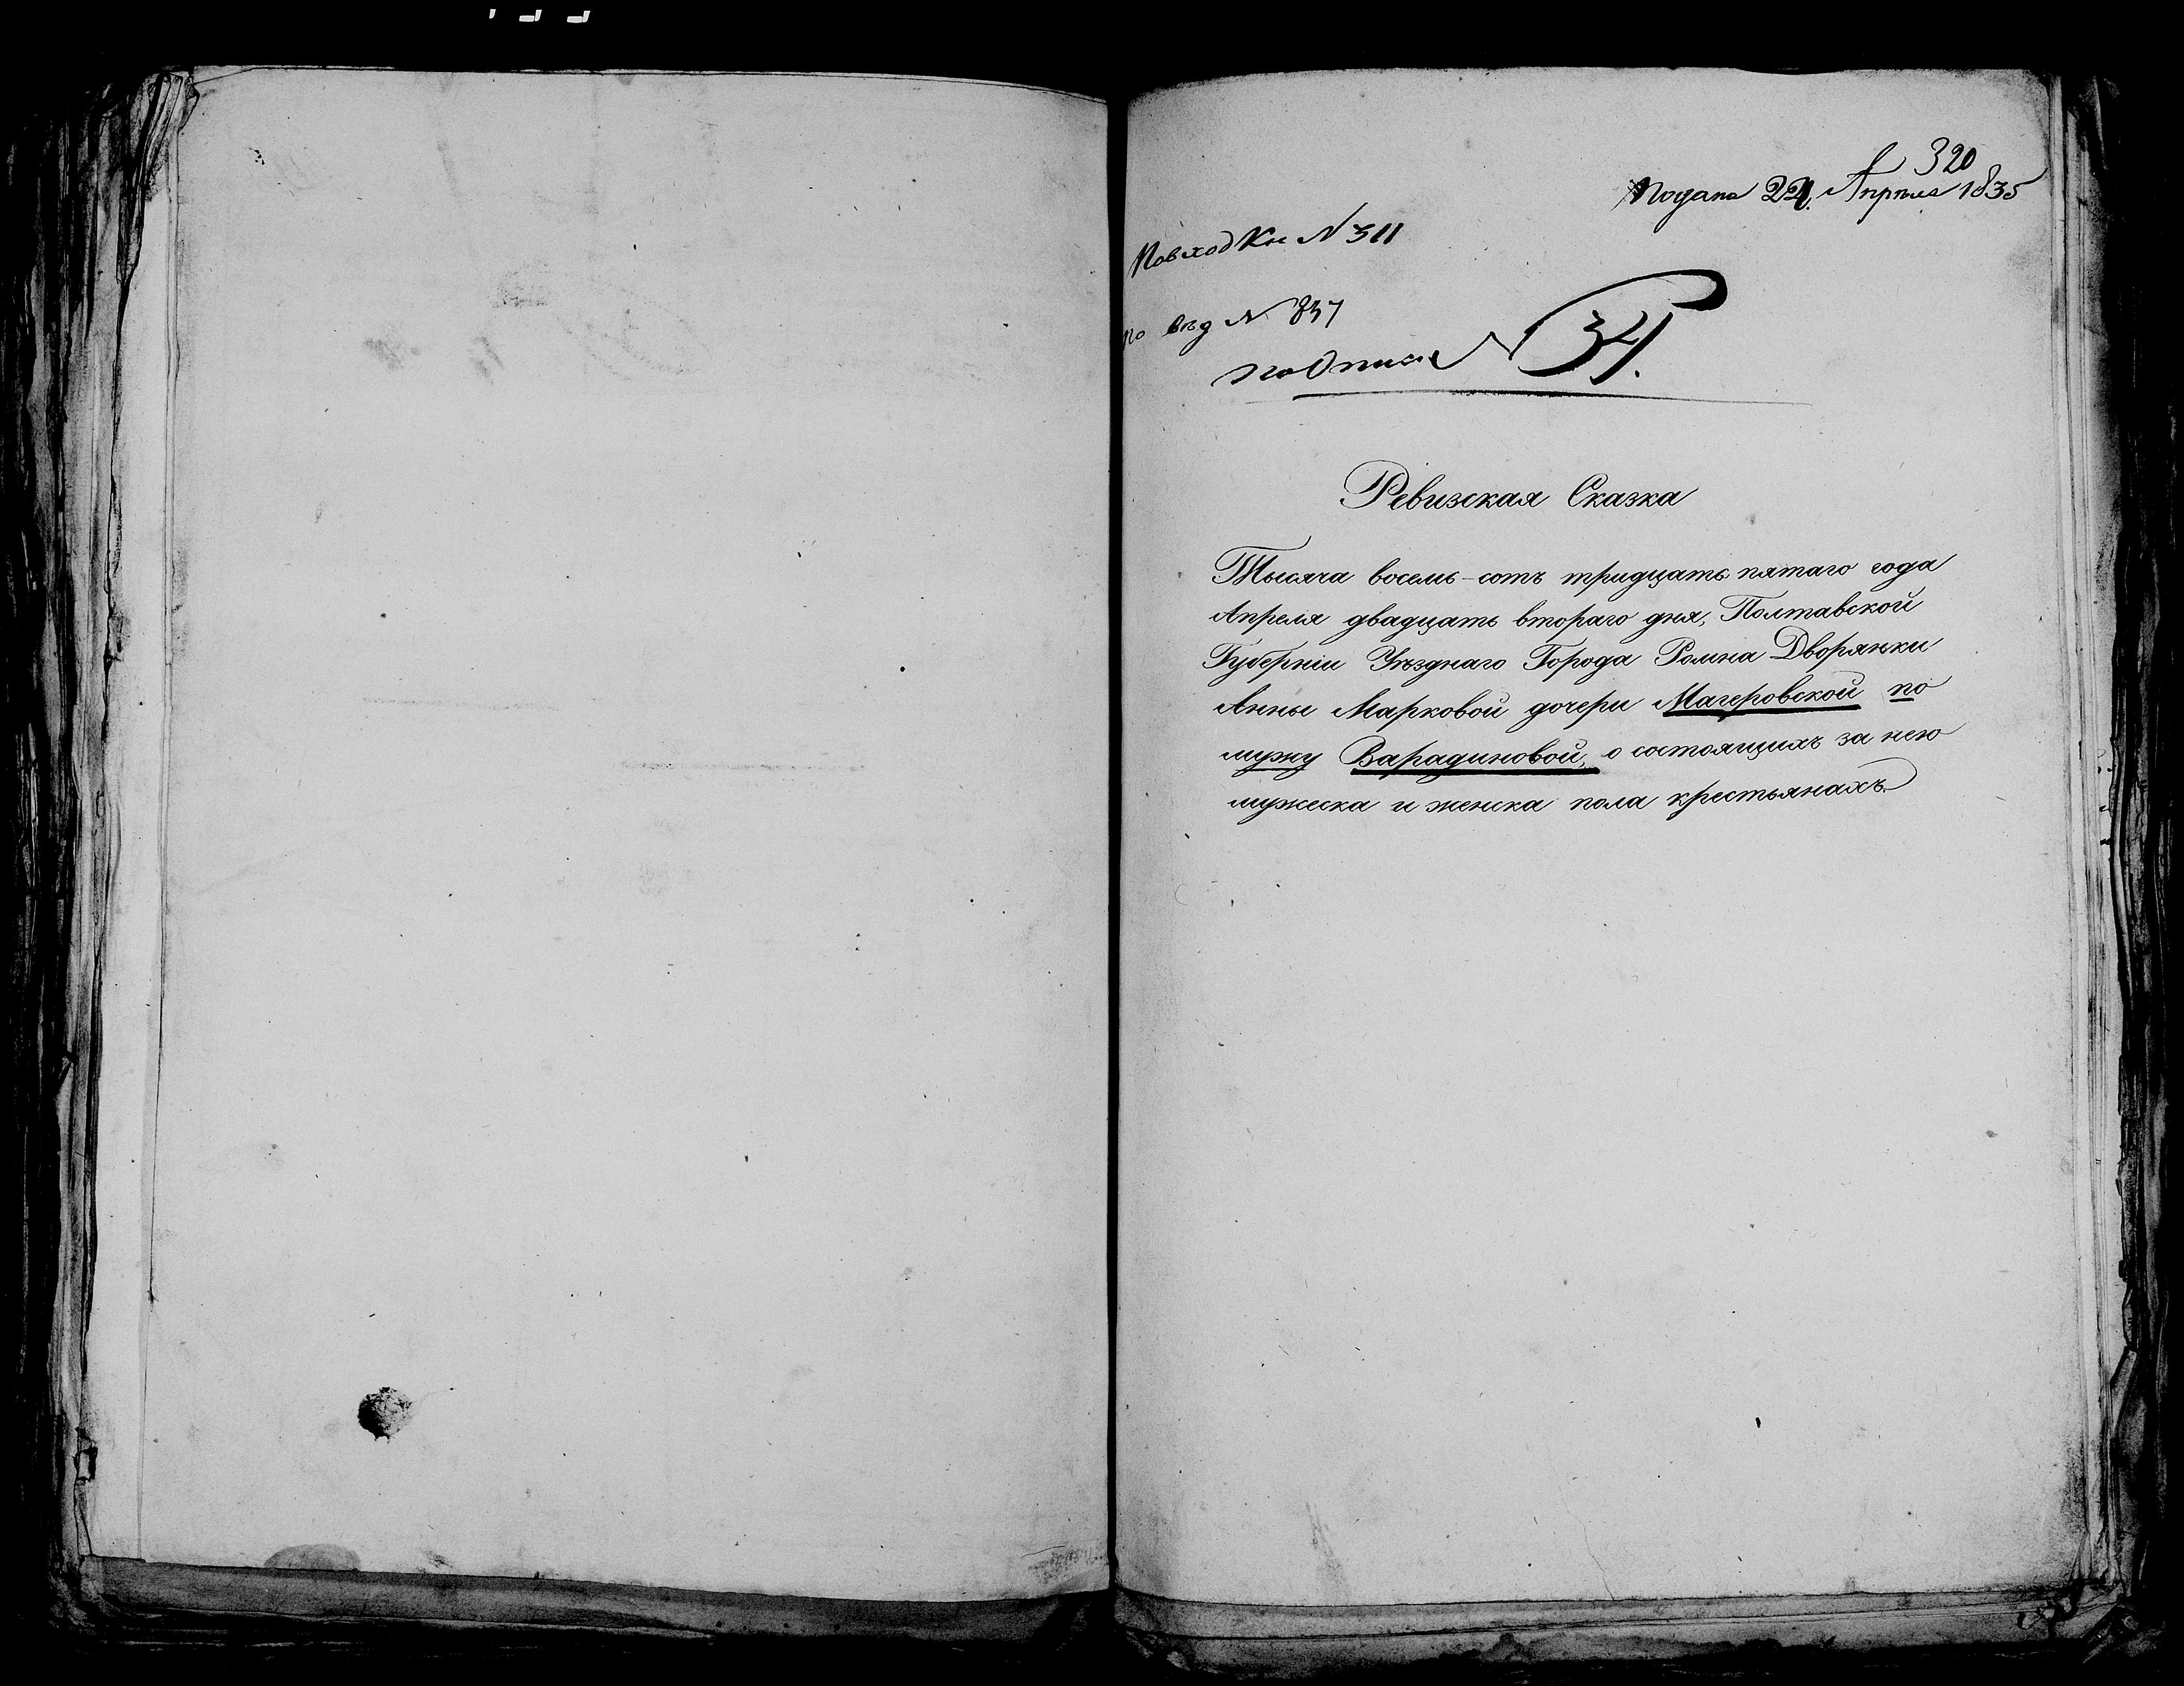 320
Подана 22 Апреля 1835
Повход Кн N 311
по вѣд N 837
по описи N 34.
Ревизская Сказка
Тысяча восемь-сотъ тридцать пятаго года
Апреля двадцать втораго дня, Полтавской
Губернiи Уѣзднаго Города Ромна Дворянки
Анны Марковой дочери Магеровской по
мужу Варадиновой, о состоящихъ за нею
мужеска и женска пола крестьянахъ.